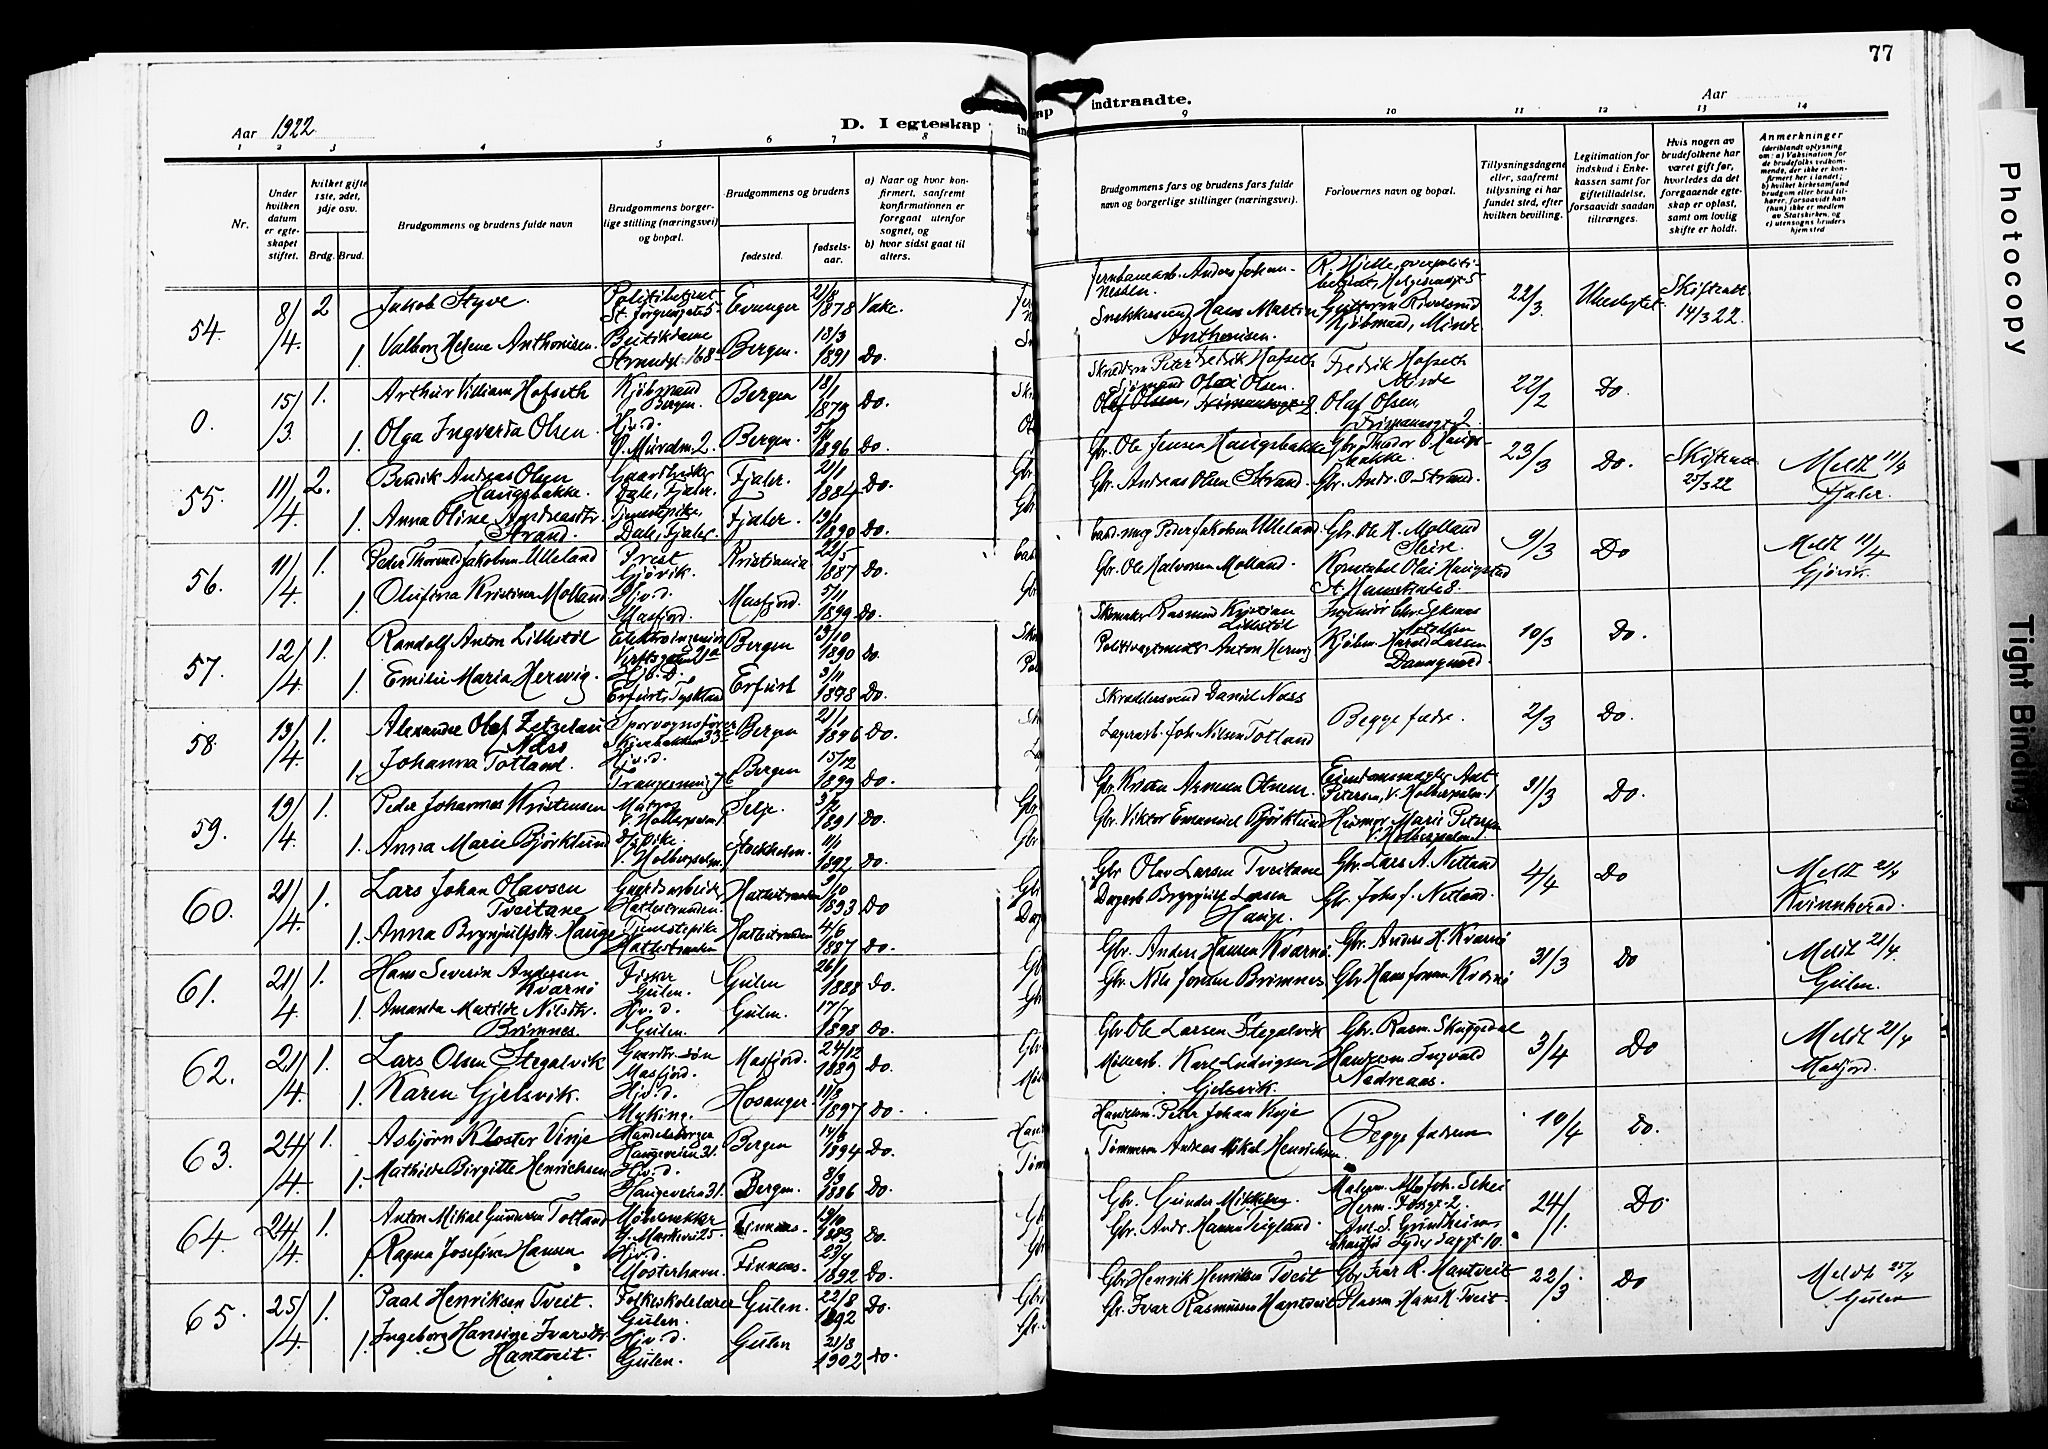 77
Aar 1922
D. I egteskap
indtraadte.
Aar
1 2 3 4 5 6 7 8
9 10 11 12 13 14
Nr.
Under hvilken datum er egteskapet stiftet.
hvilket gifte 1ste, 2det, 3dje osv.
Brdg. Brud.
Brudgommens og brudens fulde navn
Brudgommens borgerlige stilling (næringsvei) og bopæl.
Brudgommens og brudens
fødested.
fødselsaar.
a) Naar og hvor konfirmert, saafremt konfirmationen er foregaat utenfor sognet, og
b) hvor sidst gaat til alters.
Brudgommens fars og brudens fars fulde navn og borgerlige stillinger (næringsvei).
Forlovernes navn og bopæl.
Tillysningsdagene eller, saafremt tillysning ei har fundet sted, efter hvilken bevilling.
Legitimation for indskud i Enkekassen samt for giftetilladelse, forsaavidt saadan tiltrænges.
Hvis nogen av brudefolkene har været gift før, hvorledes da det foregaaende egteskap er opløst, samt om lovlig skifte er holdt.
Anmerkninger (deriblandt oplysning om: a) Vaksination for de brudefolks vedkommende, der ikke er konfirmert her i landet; b) hvilket kirkesamfund brudgom eller brud tilhører, forsaavidt han (hun) ikke er medlem av Statskirken, og c) utensogns bruders hjemsted
54. 8/4 2 Jakob Styve. Politibetjent St. Jørgensgate 5 Evanger 2/8 1878 Vake.
1. Valborg Helene Anthonisen. Butikdame Strandgt. 168 Bergen. 18/3 1891 Do.
Jernbanearb. Anders Johannessen. R. Hjelle, overpolitibetjent, Helgesensgt. 5
Snekkersvend Hans Martin Anthonisen. Kjøbmand, Minde.
22/3. Skifteatt. 14/3 22.
0. 15/3 1. Arthur Villiam Hofseth Kjøbmand Bergen. Bergen 18/1 1873 Do.
1. Olga Ingvarda Olsen. Hjv.d. Ø. Murdlm. 2. Bergen. 5/4 1896 Do.
Skreddersv. Peter Fredrik Hofseth Fredrik Hofseth Minde
Sjømand Olai Olsen. Olaf Olsen,
22/2 Do.
55. 11/4 2. Bendik Andreas Olsen Haugsbakke. Gaardbruker Dale, Fjaler. Fjaler. 21/1 1884 Do.
1. Anna Oline Andreasdtr Strand. Tjenestepike, Dale, Fjaler. Fjaler. 19/1 1890 Do.
Gbr. Ole Jensen Haugsbakke Gbr. Theodor O. Haugsbakke.
Gbr. Andreas Olsen Strand. Gbr. Andr. O. Strand.
23/3 Do. Skifteatt. 25/3 22 Meldt 11/4 Fjaler.
56. 11/4 1. Peder Thorvald Jakobsen Ulleland Prest Gjøvik. Kristiania 22/5 1887 Do.
1. Olufina Kristina Molland Hjv.d. Masfjord. Masfjord. 5/11 1899 Do.
Cand. mag. Peder Jakobsen Ulleland Gbr. Ole H. Molland
Gbr. Ole Halvorsen Molland. Konstabel Olai Haugstad St. Hansstræde 8.
9/3 Do Meldt 11/4 Gjøvik.
57. 12/4 1. Randolf Anton Lillestøl Elektroingeniør Verftsgaten 21a Bergen 13/10 1890 Do.
1. Emilie Maria Herwig. Hjv.D. Erfurt, Tyskland Erfurt 3/11 1898 Do.
Skomaker Rasmus Kristian Lillestøl Ingeniør Chr. Seknaas Notodden
Politivagtmester Anton Herwig Kjøbm. Harald Larsen Damsgaard.
10/3 Do.
58. 13/4 1. Alexander Olaf Zetzelau Næss Sporvognsfører Skivebakken 33 Bergen 21/1 1896 Do.
1. Johanna Totland. Hjv.d. Bergen 15/12 1899 Do.
Skreddersvend Daniel Næss
Lagerarb. Joh. Nilsen Totland Begge fædre.
2/3 Do.
59. 19/4 1. Peder Johannes Kristensen Matros V. Holbergsalm. 1 Selje. 3/2 1891 Do.
1. Anna Marie Björklund Tj.pike V. Holbergsalm. Stockholm. 11/1 1892 Do.
Eiendomsmægler Ant. Petersen, V. Holbergsalm. 1
Gbr. Viktor Emanuel Björklund Husmor Marie Petersen V. Holbergsalm.
31/3 Do.
60. 21/4 1. Lars Johan Olavsen Tveitane Gaardsarbeider Hatlestranden. Hatlestranden 9/10 1893 Do
1. Anna Brynjulfsdtr Hauge Tjenestepike Hatlestranden Hatlestranden 4/6 1887 Do.
Gbr Olav Larsen Tveitane Gbr. Lars A. Netland
Dagarb. Brynjulf Larsen Hauge. Gbr. Johs J. Netland.
4/4 Do Meldt 21/4 Kvinnherad.
61. 21/4 1. Hans Severin Andersen Kvarnø Fisker Gulen. Gulen 26/1 1888 Do.
1. Amanda Matilde Nilsdtr. Brimnes. Hjv.d. Gulen. Gulen. 17/7 1898 Do.
Gbr. Anders Hansen Kvarnø Gbr. Anders H. Kvarnø
Gbr. Nils Jonsen Brimnes Gbr. Hans Jonsen Kvarnø
31/3 Do Meldt 21/4. Gulen.
62. 21/4 1. Lars Olsen Stegalvik Gaardbr. søn Masfjord. Masfjord. 24/12 1889 Do
1. Karen Gjelsvik. Hjv.d. Myking. Hosanger. 11/8 1897 Do.
Gbr. Ole Larsen Stegalvik Gbr. Rasm. Skuggedal
Møllearb. Karl Ludvigsen Gjelsvik. Handelsm. Ingvald Nedreaas.
3/4 Do Meldt 21/4 Masfjord.
63. 24/4 1. Asbjørn Kloster Vinje Handelsborger Haugeveien 31. Bergen 14/6 1894 Do.
1. Mathilde Birgitte Henrichsen Hjv.d. Haugeveien 31. Bergen. 8/3 1886 Do.
Handelsm. Peter Johan Vinje
Tømmerm. Andreas Mikal Henrichsen. Begge fædrene
10/4 Do.
64. 24/4 1. Anton Mikal Gundersen Totland Møbelsnekker N. Markevei 25. Finnaas. 13/10 1883 Do
1. Ragna Josefine Hansen Hjv.d. Mosterhavn. Finnaas. 23/4 1892 Do.
Gbr. Gunder Mikkelsen. Malerm. Alb. Joh. Schei Herm. Fossgt. 2.
Gbr. Andr. Hansen Teigland. Ant. S. Grindheim
24/1 Do
65. 25/4 1. Paal Henriksen Tveit. Folkeskolelærer Gulen. Gulen. 22/8 1892 Do.
1. Ingeborg Hansine Ivarsdtr Hantveit. Hjv.d. Gulen. Gulen 31/8 1902 Do.
Gbr. Henrik Henriksen Tveit Gbr. Ivar R. Hantveit
Gbr. Ivar Rasmussen Hantveit Hans H. Tveit.
22/3 Do Meldt 25/4 Gulen
Photocopy
Tight Binding